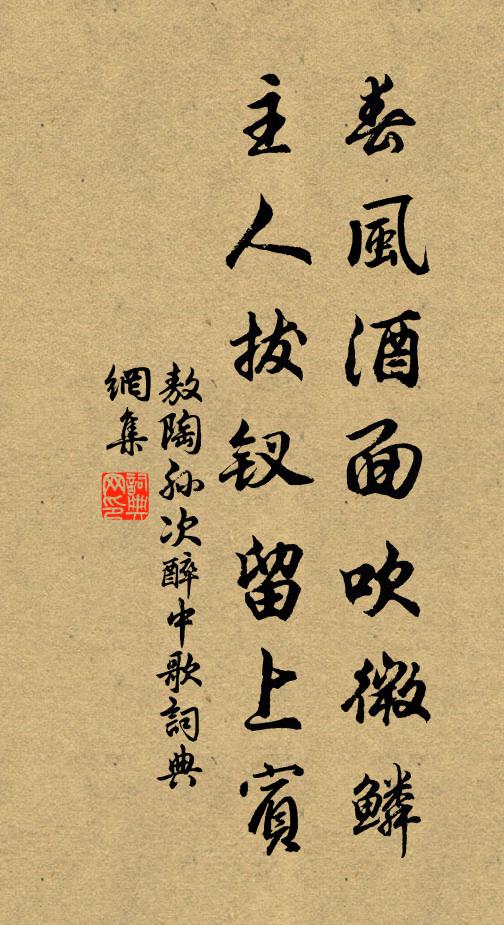 春風酒面吹微鱗
主人拔釵留上賓
敖陶孫次醉中歌詞典
網集
詞典網印